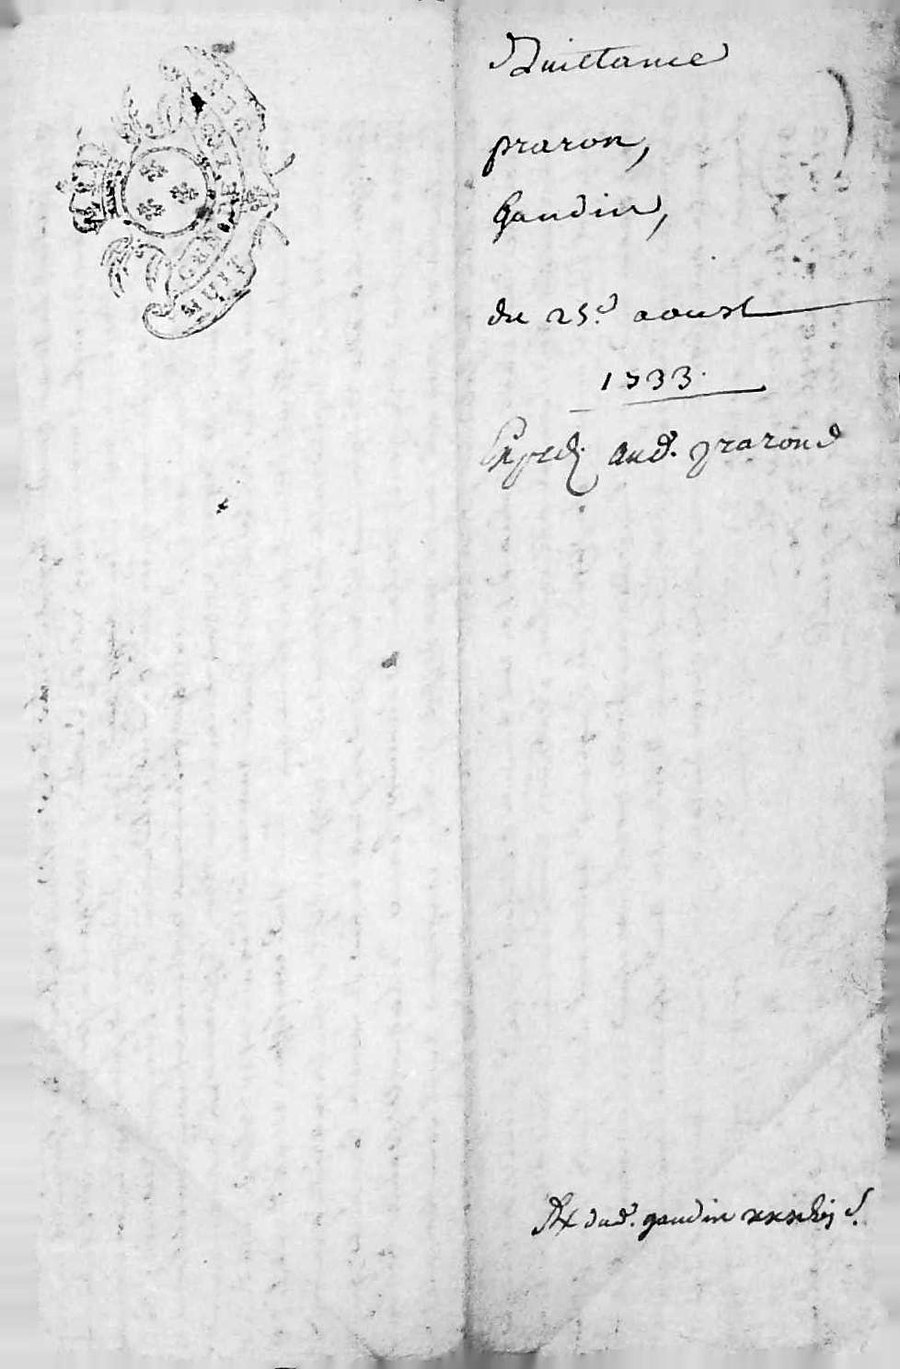 Quittance
praron,
Gaudin,
du 25.e aoust
1733.
Exped. aud. praron
Rx dud. gaudin